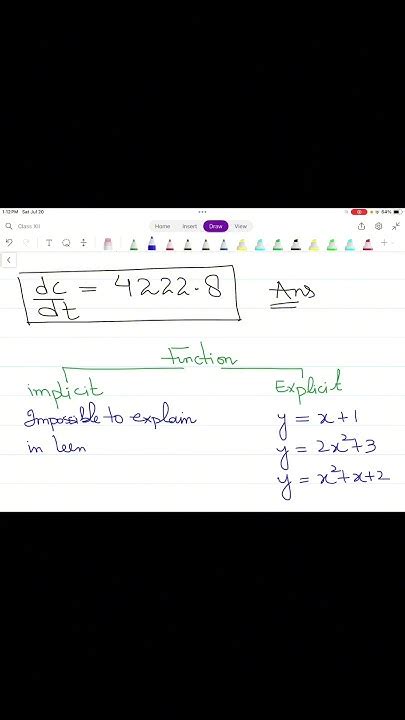 1:12 PM Sat Jul 20
64%
Class XII
Home Insert Draw View
dc/dt = 4222.8 Ans
Function
implicit Explicit
Impossible to explain y = x+1
in y = 2x²+3
y = x²+x+2